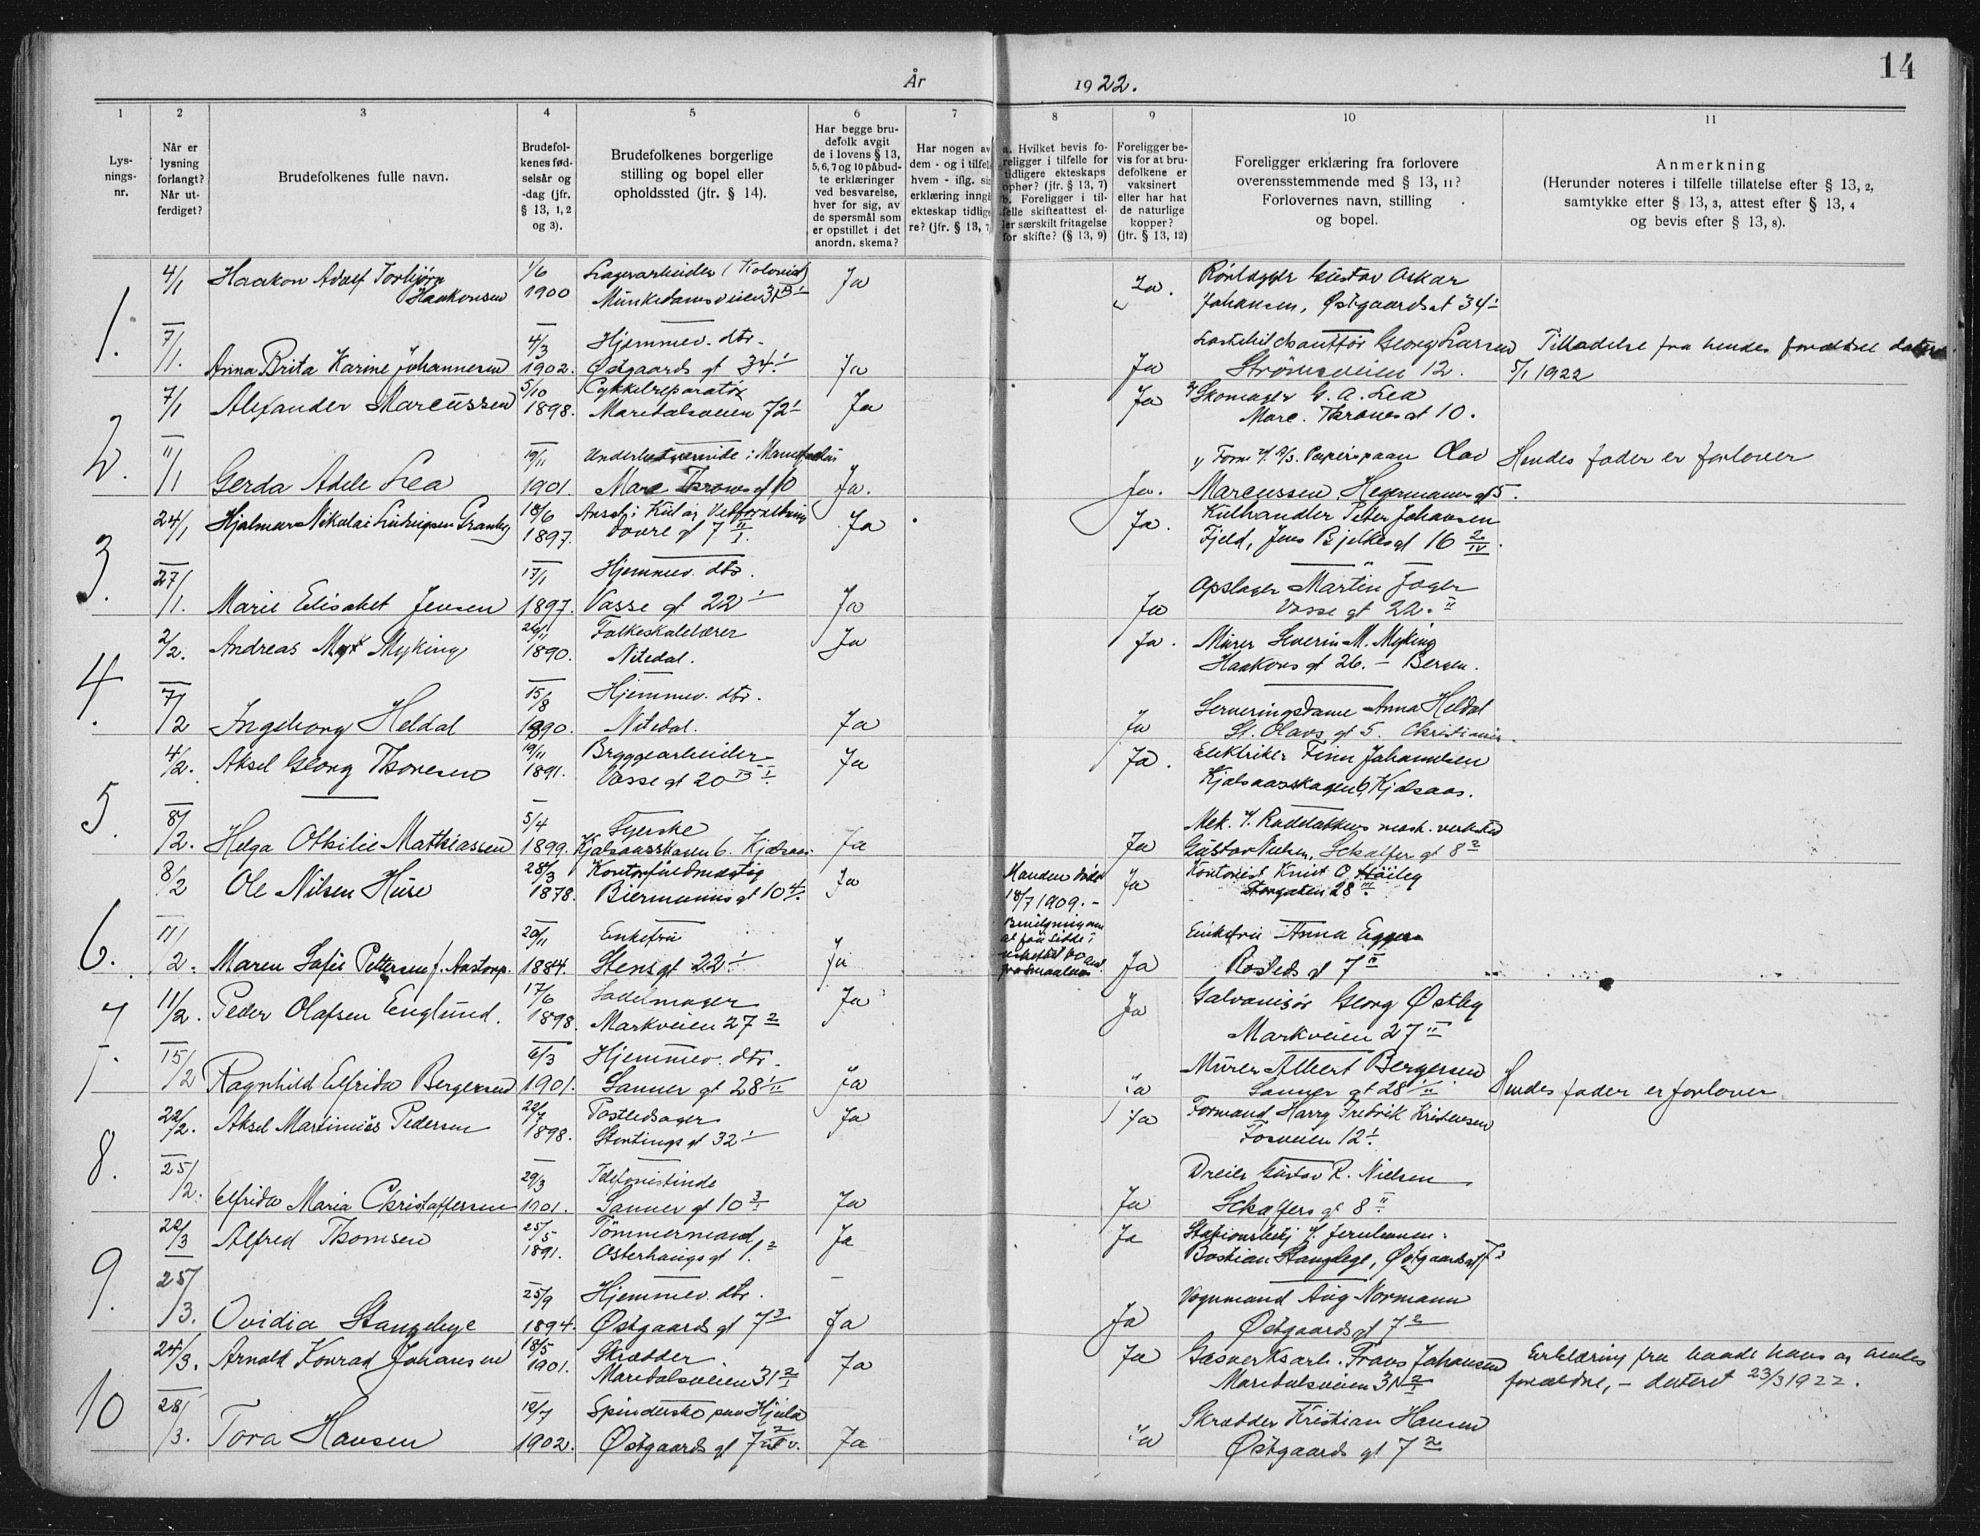 14
År 1922.
1 2 3 4 5 6 7 8 9 10 11
Lys-
nings-
nr.
Når er
lysning
forlangt?
Når ut-
ferdiget?
Brudefolkenes fulle navn.
Brudefol-
kenes fød-
selsår og
-dag (jfr.
§ 13, 1, 2
og 3).
Brudefolkenes borgerlige
stilling og bopel eller
opholdssted (jfr. § 14).
Har begge bru-
defolk avgit
de i lovens § 13,
5, 6, 7 og 10 påbud-
te erklæringer
ved besvarelse,
hver for sig, av
de spørsmål som
er opstillet i det
anordn. skema?
Har nogen av
dem - og i tilfel
hvem - iflg. si
erklæring inngå
ekteskap tidlige
re? (jfr. § 13, 7
a. Hvilket bevis fo-
religger i tilfelle for
tidligere ekteskaps
ophør? (jfr. § 13, 7)
b. Foreligger i til-
felle skifteattest el-
ler særskilt fritagelse
for skifte? (§ 13, 9)
Foreligger be-
vis for at bru-
defolkene er
vaksinert
eller har hat
de naturlige
kopper?
(jfr. § 13, 12)
Foreligger erklæring fra forlovere
overensstemmende med § 13, 11?
Forlovernes navn, stilling
og bopel.
Anmerkning
(Herunder noteres i tilfelle tillatelse efter § 13, 2,
samtykke efter § 13, 3, attest efter § 13, 4
og bevis efter § 13, 8).
1. 4/1 Haakon Adolf Torbjørn Haakonsen 1/6 1900 Lagerarbeider (Kolonial) Munkedamsveien Ja Ja. Gustav Oskar
Johansen, Østgaardsgt 34 I
7/1. Anna Brita Karine Johannesen 4/3 1902. Hjemmev. dtr. Østgaards gt 34 I Ja Ja Georg Larsen
Strømsveien 12. Tilladelse fra hendes forældre datert
5/1 1922
2. 7/1 Alexander Marcussen 5/10 1898. Cykkelreparatør Maridalsveien 72 I Ja Ja Skomager G. A. Lea
Marc. Thranes gt 10.
11/1 Gerda Adele Lea 19/11 1901. Marc Thranes gt 10 Ja. Ja. Olav
Marcussen, Hegermanns gt 5. Hendes fader er forlover
3. 24/1 Hjalmar Nikolai Ludvigsen Granby 18/6 1897. Ansat i Kul og Vedforsyning Dovre gt 7 Ja Ja. Kulhandler Peter Johansen
Fjeld, Jens Bjelkes gt 16
27/1. Marie Elisabet Jensen 17/1 1897. Hjemmev. dtr. Vasse gt 22 I Ja Ja Opslager Martin Jager
Vosse gt 22. II
4. 2/2. Andreas Myking 26/11 1890. Folkeskolelærer Nitedal. Ja Ja. Murer Severin M. Myking
Haakons gt 26. - Bergen.
7/2 Ingeborg Heldal 15/8 1890. Hjemmev. dtr. Nitedal. Ja Ja Serveringsdame Anna Heldal
St. Olavs gt 5. Christiania.
5. 4/2. Aksel Georg Thoresen 19/11 1891. Bryggearbeider Vosse gt 20 Ja Ja. Elektriker Finn Johannesen
Kjelsaasskogen 6, Kjelsaas.
8/2. Helga Othilie Mathiassen 5/4 1899. Syerske Kjelsaasskogen 6. Kjelsaas. Ja Ja Mek. v. mek. verksted
Gustav Nielsen, Schaffers gt 8 2
6. 8/2 Ole Nilsen Huse 28/3 1878. Kontorfuldmægtig Biermanns gt 10 4 Ja Ja Kontorist Knut O.
Storgaten 28 III.
11/2. Maren Sofie Pettersen f. Aastorp. 20/11 1884. Enkefru Stens gt 22 I Ja Manden død
18/7 1909. - Ja Enkefru Anna Egger
Rosteds gt 7 II
7. 11/2. Peder Olafsen Englund. 17/6 1898. Sadelmager Markveien 27 2 Ja Ja Galvanisør Georg Østby
Markveien 27 II
15/2 Ragnhild Elfrida Bergersen 6/3 1901. Hjemmev. dtr. Sanner gt 28 Ja Ja Murer Albert Bergersen
Sanner gt 28 Hendes fader er forlover
8. 22/2. Aksel Martinius Pedersen 22/7 1898. Postledsager Stortings gt 32 I Ja Ja Formand Harry Fredrik Kristensen
Fosveien 12 I.
25/2. Elfrida Maria Christoffersen 29/3 1901. Telefonistinde Sanner gt 10 3 Ja Ja Dreier Gustav R. Nielsen
Schaffers gt 8 II
9. 22/3 Alfred Thomsen 25/5 1891. Tømmermand Osterhausgs gt 1. 2 Ja Ja Stationsbetj. v. jernbanen.
Bastian Stangebye, Østgaards gt 7 3
25/3. Ovidia Stangebye 25/9 1894. Hjemmev. dtr. Østgaards gt 7 3 Ja Ja Vognmand Aug Normann
Østgaards gt 7 2
10 24/3. Arnold Konrad Johansen 18/5 1901. Skrædder Maridalsveien 31 2/I Ja Ja Gasverksarb. Frans Johansen
Maridalsveien 31 2/I Erklæring fra baade hans og hendes
forældre, - dateret 23/3 1922.
28/3. Tora Hansen 12/7 1902. Spinderske paa Hjula Østgaards gt 7 Ja Ja Skrædder Kristian Hansen
Østgaards gt 7 2